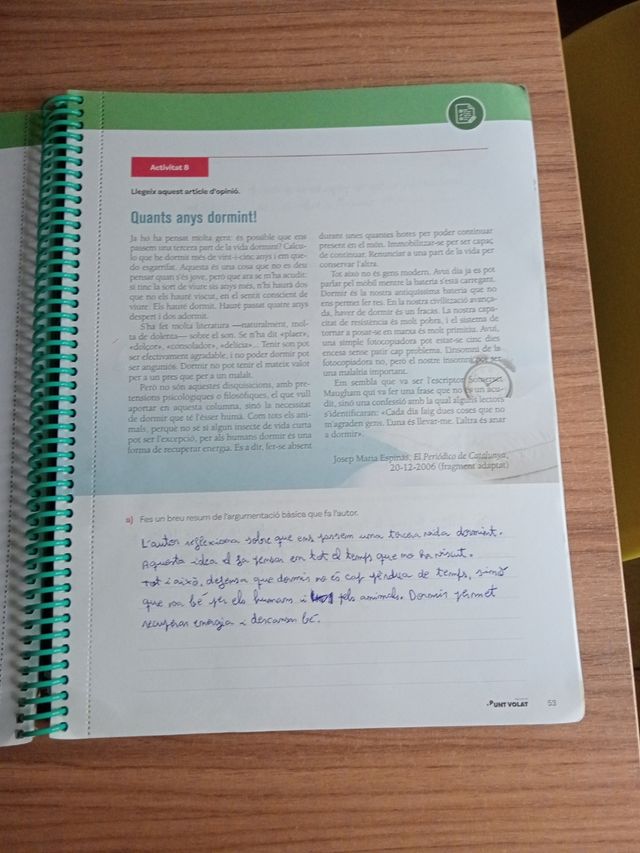 Activitat 8
Llegeix aquest article d'opinió.
Quants anys dormint!
Ja ho ha pensat molta gent: és possible que ens
passem una tercera part de la vida dormint? Calcu-
lo que he dormit més de vint-i-cinc anys i em que-
do esgarrifat. Aquesta és una cosa que no es deu
pensar quan s'és jove, però que ara se m'ha acudit:
si tinc la sort de viure sis anys més, n'hi haurà dos
que no els hauré viscut, en el sentit conscient de
viure. Els hauré dormit. Hauré passat quatre anys
despert i dos adormit.
S'ha fet molta literatura —naturalment, mol-
ta de dolenta— sobre el son. Se n'ha dit «plaer»,
«dolçor», «consolador», «delícia»... Tenir son pot
ser efectivament agradable, i no poder dormir pot
ser angúnios. Dormir no pot tenir el mateix valor
per a un pres que per a un malalt.
Però no són aquestes disquisicions, amb pre-
tensions psicològiques o filosòfiques, el que vull
aportar en aquesta columna, sinó la necessitat
de dormir que té l'ésser humà. Com tots els ani-
mals, perquè no sé si algun insecte de vida curta
pot ser l'excepció, per als humans dormir és una
forma de recuperar energia. És a dir, fer-se absent
durant unes quantes hores per poder continuar
present en el món. Immobilitzar-se per ser capaç
de continuar. Renunciar a una part de la vida per
conservar l'altra.
Tot això no és gens modern. Avui dia ja es pot
parlar pel mòbil mentre la bateria s'està carregant.
Dormir és la nostra antiquíssima bateria que no
ens permet fer res. En la nostra civilització avança-
da, haver de dormir és un fracàs. La nostra capa-
citat de resistència és molt pobra, i el sistema de
tornar a posar-se en marxa és molt primitiu. Avui,
una simple fotocopiadora pot estar-se cinc dies
encesa sense patir cap problema. L'insomni de la
fotocopiadora no, però el nostre insomni pot ser
una malaltia important.
Em sembla que va ser l'escriptor Somerset
Maugham qui va fer una frase que no és un acu-
dit, sinó una confessió amb la qual alguns lectors
s'identificaran: «Cada dia faig dues coses que no
m'agraden gens. L'una és llevar-me. L'altra és anar
a dormir».
Josep Maria Espinàs, El Periódico de Catalunya,
20-12-2006 (fragment adaptat)
a) Fes un breu resum de l'argumentació bàsica que fa l'autor.
L'autor reflexiona sobre que ens passem una tercera vida dormint.
Aquesta idea el fa pensar en tot el temps que no ha viscut.
Tot i això, defensa que dormir no és cap pèrdua de temps, sinó
que va bé per els humans i pels animals. Dormir permet
recuperar energia i descansar bé.
PUNT VOLAT
53